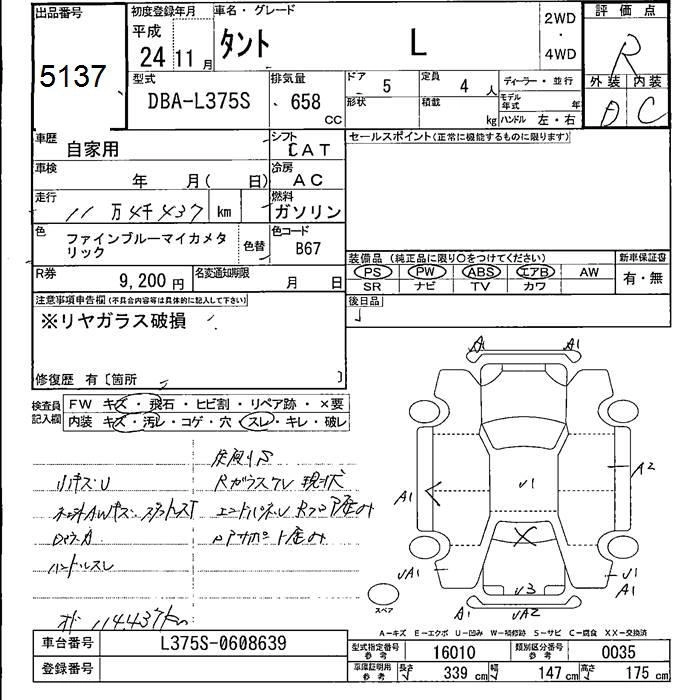 出品番号
5137
初度登録年月
平成
24 11 月
車名・グレード
タント L
2WD
・
4WD
評価点
R
外装 内装
D C
型式
DBA-L375S
排気量
658
CC
ドア 5
形状
定員 4 人
積載 kg
ディーラー・並行
モデル年式 年
ハンドル 左・右
車歴
自家用
シフト
CAT
セールスポイント(正常に機能するものに限ります)
車検
年 月( 日)
冷房
AC
走行
11 万4千437 km
燃料
ガソリン
色
ファインブルーマイカメタ
リック
色替
色コード
B67
R券
9,200 円
名変通知期限
月 日
装備品(純正品に限り○をつけてください)
PS PW ABS エアB AW
SR ナビ TV カワ
新車保証書
有・無
後日品
注意事項申告欄(不具合内容等は具体的に記入して下さい)
※リヤガラス破損
修復歴 有〔箇所 〕
検査員
記入欄
FW キズ・飛石・ヒビ割・リペア跡・×要
内装 キズ・汚レ・コゲ・穴・スレ・キレ・破レ
Rガラスワレ 現状
ハンドルスレ
114.437km
A1 A1
A1
A2
U1
UA1
U3
U1
A1
A1
UA2
スペア
A-キズ E-エクボ U-凹み W-補修跡 S-サビ C-腐食 XX-交換済
車台番号
L375S-0608639
登録番号
型式指定番号
参考
16010
類別区分番号
参考
0035
車庫証明用
参考
長さ 339 cm
幅 147 cm
高さ 175 cm